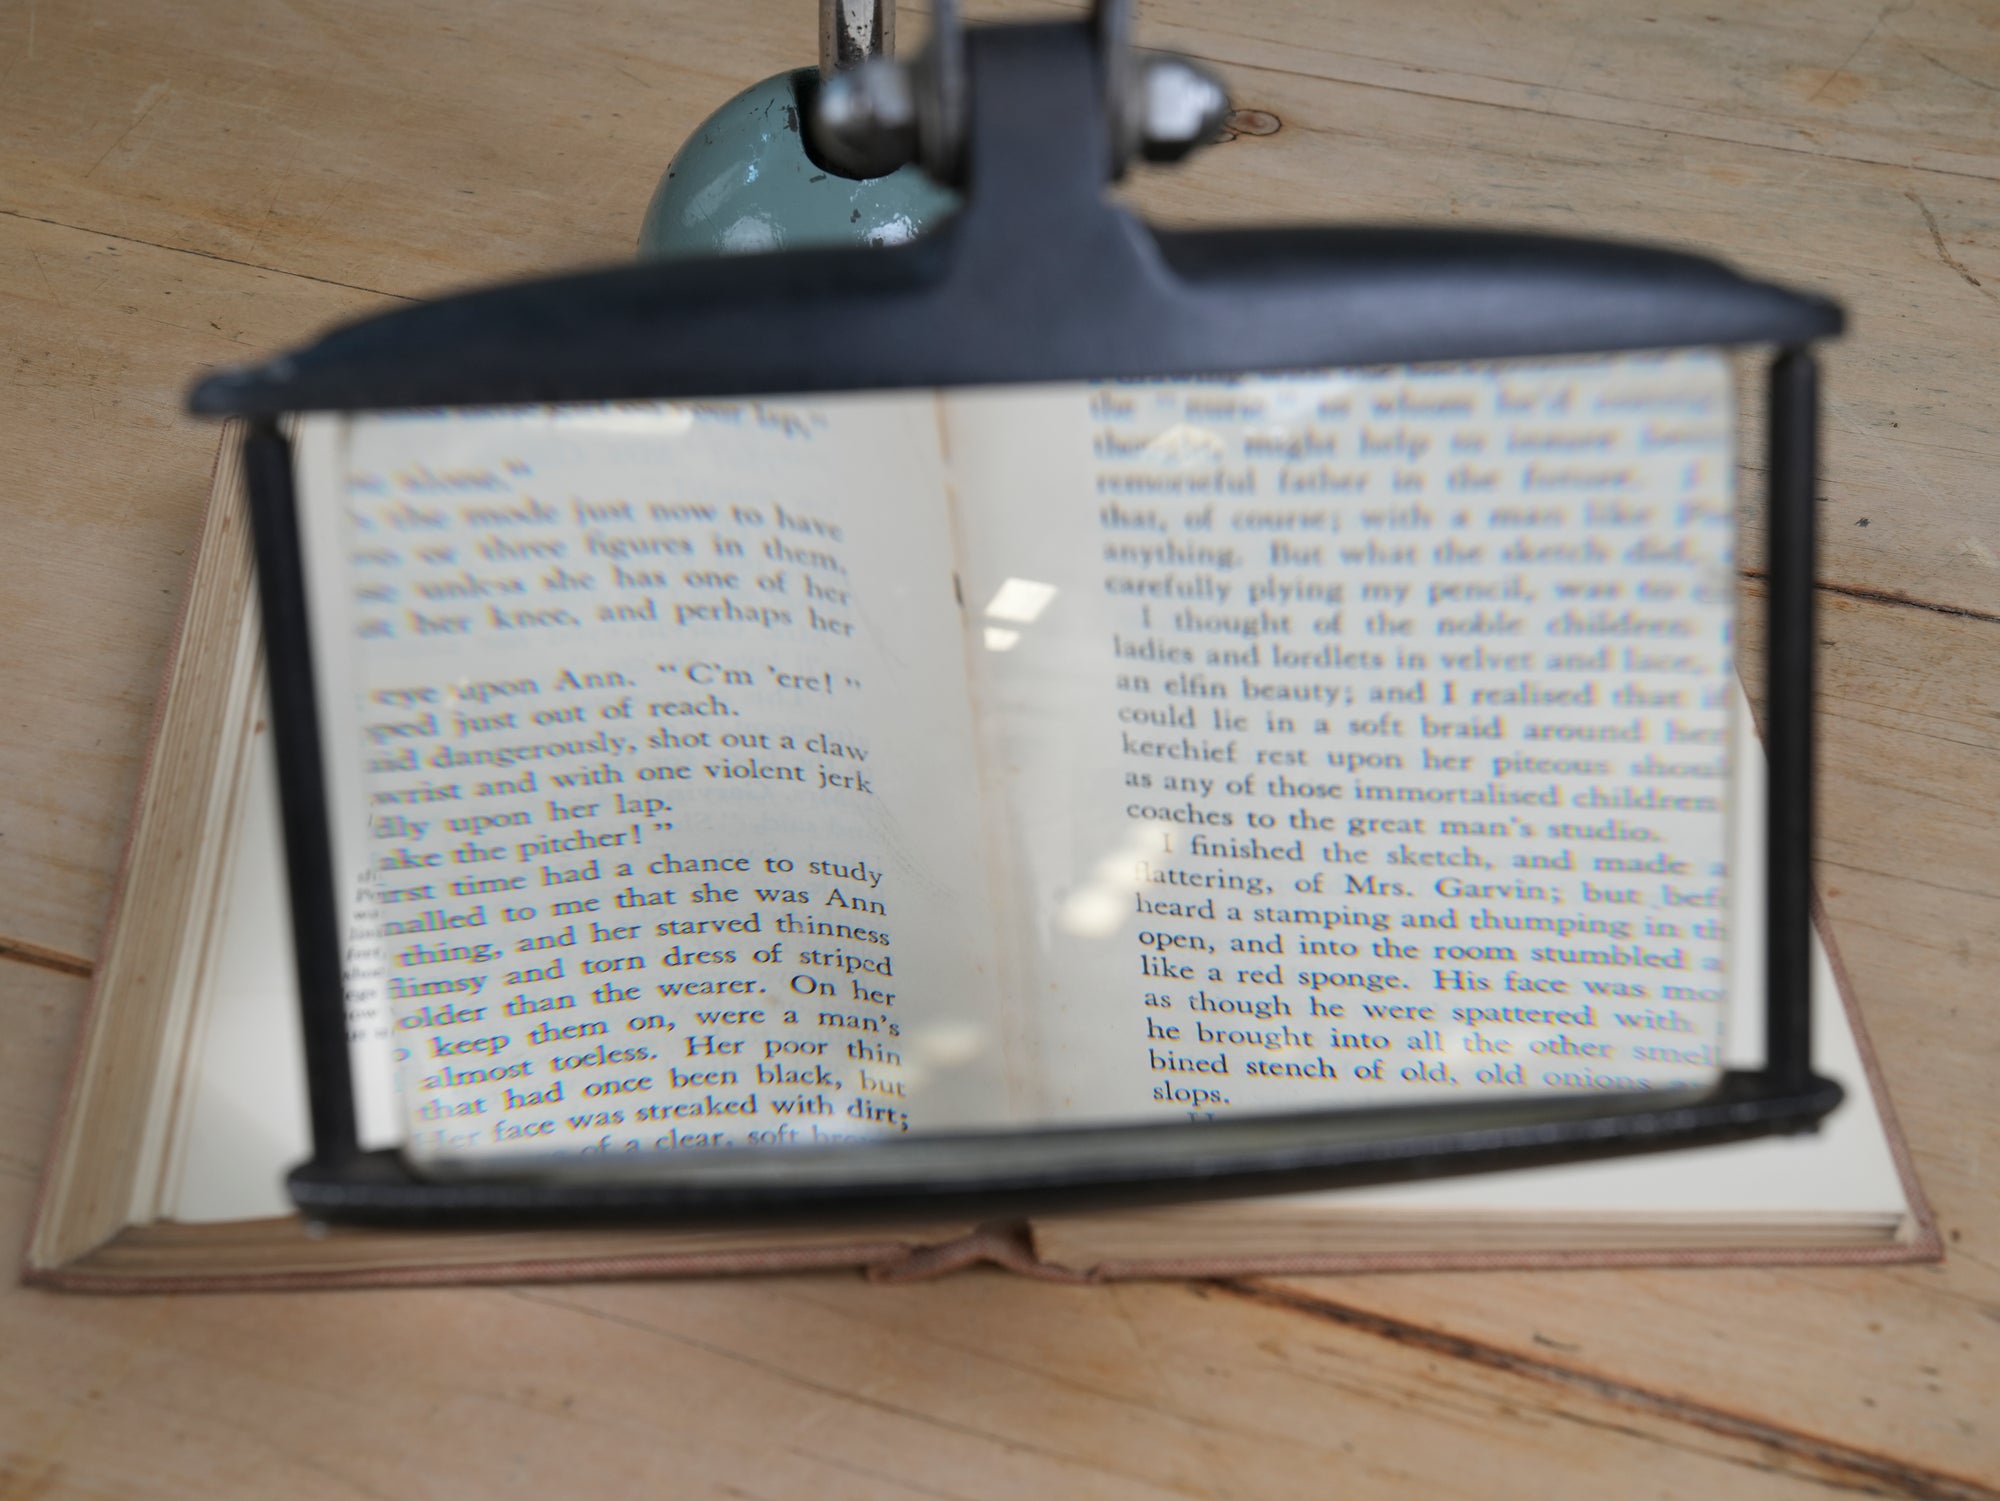 lap,"
alone."
the mode just now to have
or three figures in them,
unless she has one of her
at her knee, and perhaps her
eye upon Ann. "C'm 'ere!"
ped just out of reach.
aid dangerously, shot out a claw
wrist and with one violent jerk
dly upon her lap.
ake the pitcher!"
irst time had a chance to study
nalled to me that she was Ann
thing, and her starved thinness
flimsy and torn dress of striped
older than the wearer. On her
o keep them on, were a man's
almost toeless. Her poor thin
that had once been black, but
Her face was streaked with dirt;
of a clear, soft
the "nurse" to whom he'd
might help to insure
remorseful father in the future. I
that, of course; with a man like
anything. But what the sketch did,
carefully plying my pencil, was to
I thought of the noble children
ladies and lordlets in velvet and lace,
an elfin beauty; and I realised that if
could lie in a soft braid around her
kerchief rest upon her piteous shoul
as any of those immortalised children
coaches to the great man's studio.
I finished the sketch, and made a
flattering, of Mrs. Garvin; but bef
heard a stamping and thumping in th
open, and into the room stumbled a
like a red sponge. His face was mo
as though he were spattered with
he brought into all the other smell
bined stench of old, old onions
slops.